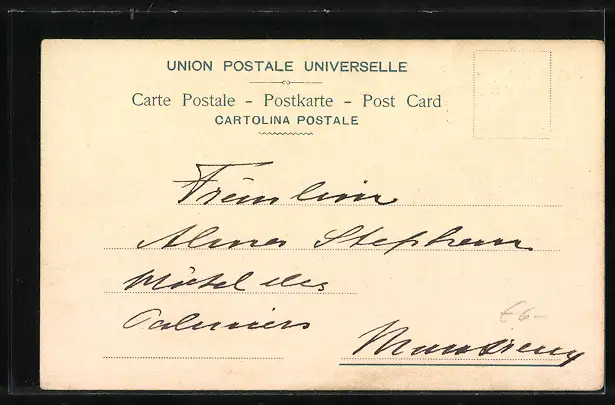 UNION POSTALE UNIVERSELLE
Carte Postale - Postkarte - Post Card
CARTOLINA POSTALE
Fräulein
Alma Stephann
Hôtel des
Palmiers
€6-